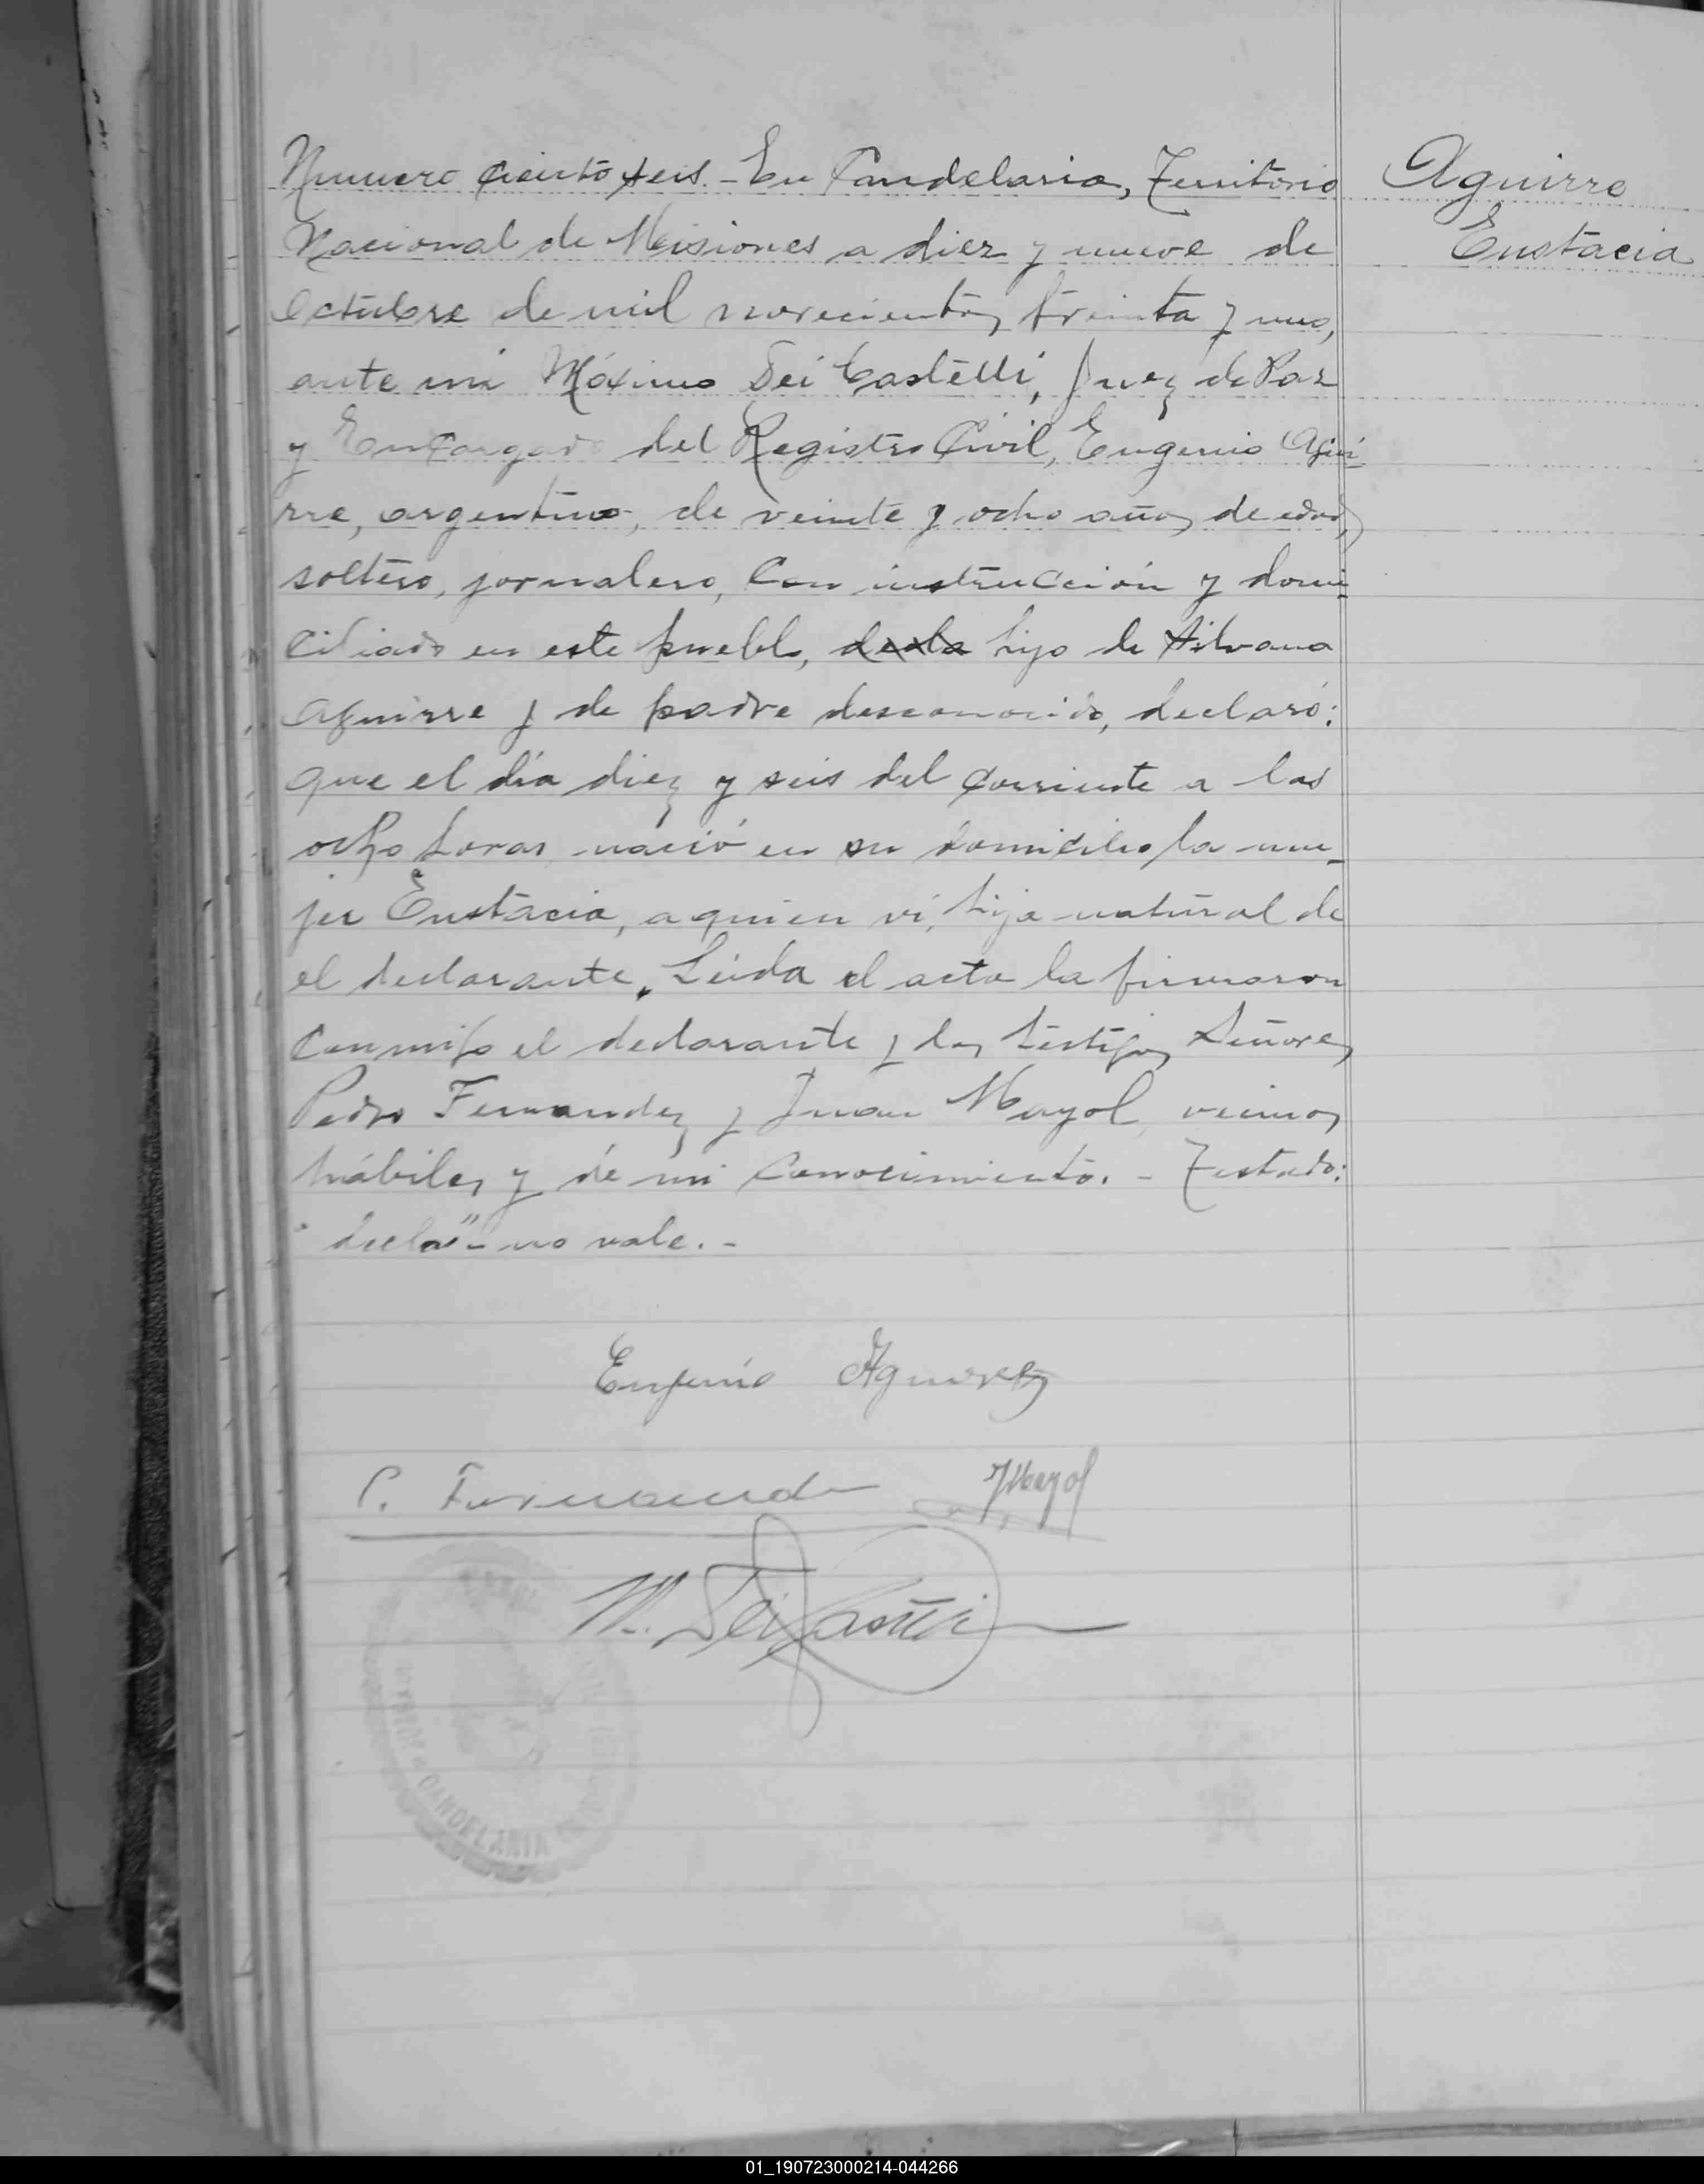 Numero ciento seis.- En Candelaria, Territorio
Nacional de Misiones a diez y nueve de
octubre de mil novecientos treinta y uno,
ante mi Máximo Dei Castelli, Juez de Paz
y Encargado del Registro Civil, Eugenio Agui-
rre, argentino, de veinte y ocho años de edad,
soltero, jornalero, con instrucción y domi-
ciliado en este pueblo, decla hijo de Silvana
Aguirre y de padre desconocido, declaró:
que el día diez y seis del corriente a las
ocho horas nació en su domicilio la mu-
jer Eustacia, a quien vi, hija natural de
el declarante. Leida el acta la firmaron
conmigo el declarante y los testigos Señores
Pedro Fernandez y Juan Mayol, vecinos
hábiles y de mi conocimiento.- Testado:
"decla"- no vale.-
Aguirre
Eustacia
Eugenio Aguirrez
P. Fernandez JMayol
M. Dei Castelli
CANDELARIA
01_190723000214-044266